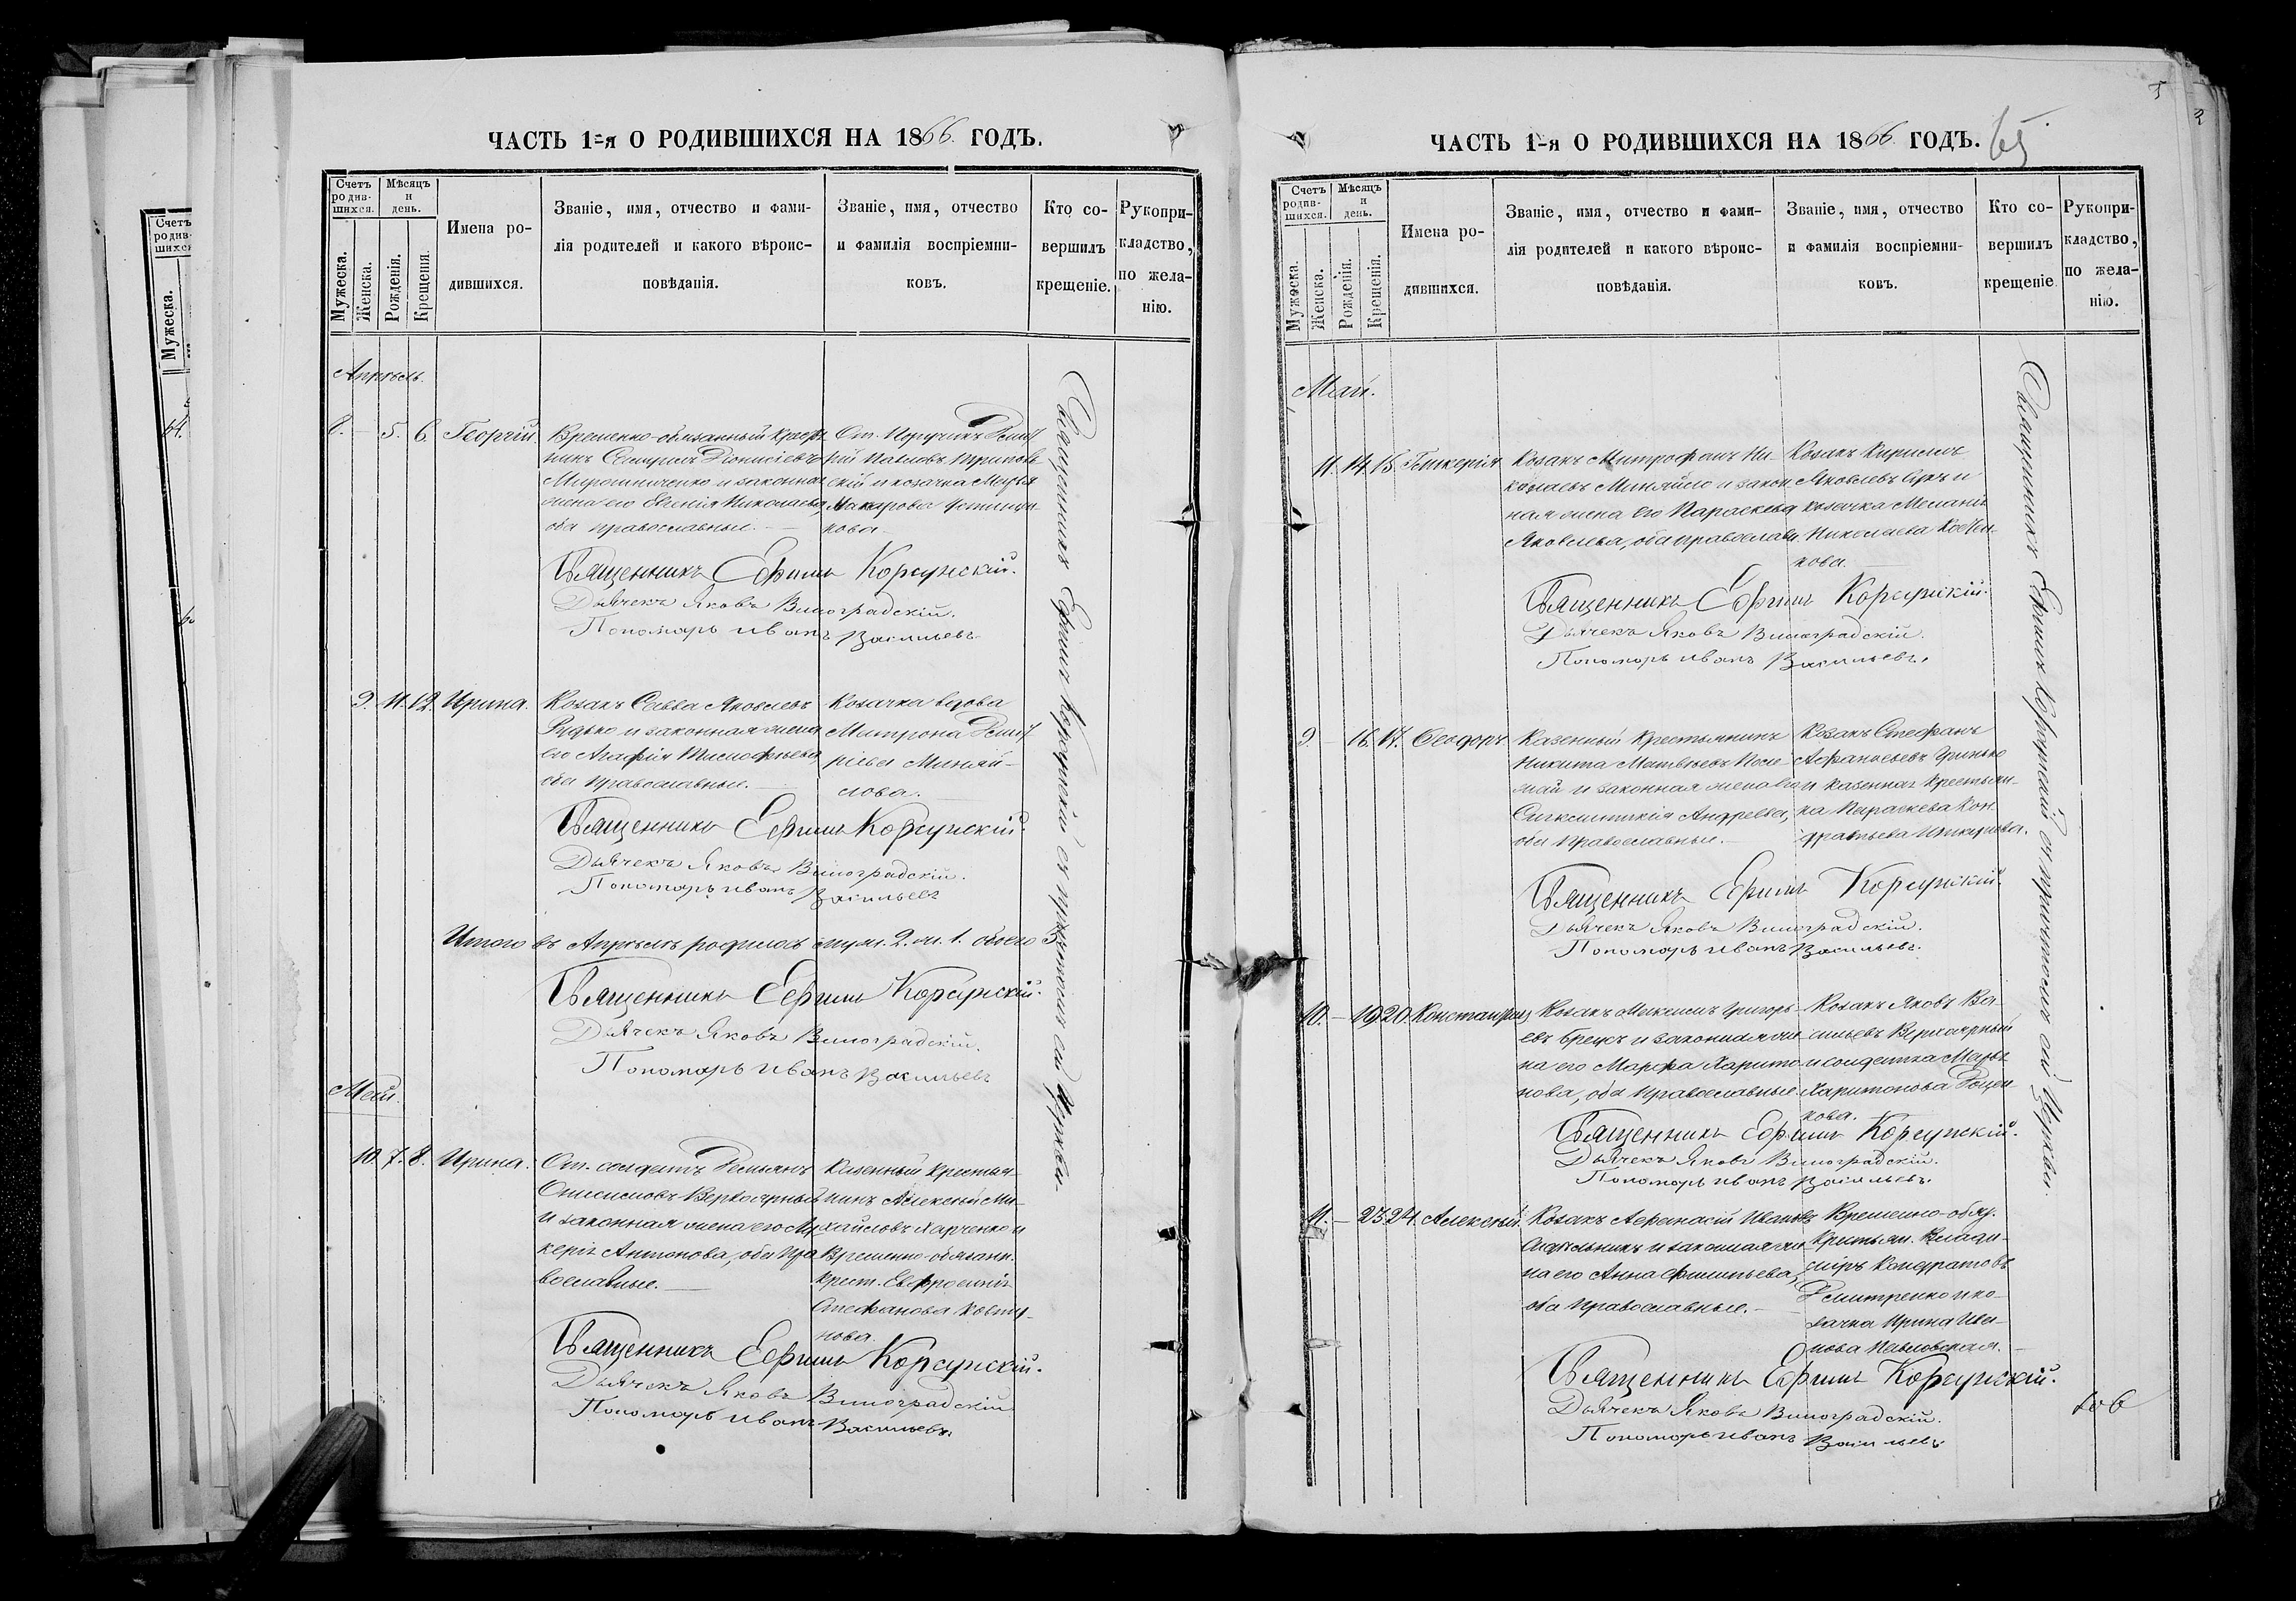 ЧАСТЬ 1-я О РОДИВШИХСЯ НА 1866 ГОДЪ.
Счетъ родив-шихся.
Мѣсяцъ и день.
Мужеска.
Женска.
Рожденія.
Крещенія.
Имена ро-
дившихся.
Званіе, имя, отчество и фами-
лія родителей и какого вѣроис-
повѣданія.
Званіе, имя, отчество
и фамилія воспріемни-
ковъ.
Кто со-
вершилъ
крещеніе.
Рукопри-
кладство,
по жела-
нію.
Апрѣль.
8. — 5. 6. Георгій.
Временно-обязанный крест
нинъ Діонисіевъ
Мирошниченко и законная
жена его Евгенія Николаева
оба православные.
От. Поручикъ Дмит
рій Павловъ
скій и козачка Марья
Макарова
кова
Священникъ Ефимъ Корсунскій.
Дьячекъ Яковъ Виноградскій.
Пономарь Иванъ Васильевъ
9. 11. 12. Ирина.
Козакъ Савва Яковлевъ
Рудько и законная жена
его Агафія
оба православные.
Козачка вдова
Матрона Дмит
ріева Миняй-
лова.
Священникъ Ефимъ Корсунскій.
Дьячекъ Яковъ Виноградскій.
Пономарь Иванъ Васильевъ
Итого въ Апрѣлѣ родилось муж. 2. ж. 1. обоего 3
Священникъ Ефимъ Корсунскій.
Дьячекъ Яковъ Виноградскій.
Пономарь Иванъ Васильевъ
Май.
10. 7. 8. Ирина.
От. солдатъ Демьянъ
Онисимовъ Верхоярный
и законная жена его Лу
керія Антонова, оба пра
вославные.
Казенный крестья-
нинъ Алексѣй Ми-
хайловъ Харченко и
Временно-обязанн.
крест. Евфросинія
Стефанова Ковту-
нова.
Священникъ Ефимъ Корсунскій.
Дьячекъ Яковъ Виноградскій
Пономарь Иванъ Васильевъ.
Священникъ Ефимъ Корсунскій съ причтомъ ей Церкви.
ЧАСТЬ 1-я О РОДИВШИХСЯ НА 1866 ГОДЪ.
65
Счетъ родив-шихся.
Мѣсяцъ и день.
Мужеска.
Женска.
Рожденія.
Крещенія.
Имена ро-
дившихся.
Званіе, имя, отчество и фами-
лія родителей и какого вѣроис-
повѣданія.
Званіе, имя, отчество
и фамилія воспріемни-
ковъ.
Кто со-
вершилъ
крещеніе
Рукопри-
кладство,
по жела-
нію.
Май.
11. 14. 15. Гликерія
Козакъ Митрофанъ Ни
колаевъ Миняйло и закон
ная жена его Параскева
Яковлева, оба православн
Козакъ Кириллъ
Яковлевъ и
козачка Меланія
Николаева
кова.
Священникъ Ефимъ Корсунскій.
Дьячекъ Яковъ Виноградскій.
Пономарь Иванъ Васильевъ.
9. — 16. 17. Ѳеодоръ
Казенный крестьянинъ
Никита Матвѣевъ
и законная жена его
Андреева,
оба православные.
Козакъ Стефанъ
Афанасьевъ Гринько
и казенная крестьян-
ка Параскева Кон
дратьева
Священникъ Ефимъ Корсунскій.
Дьячекъ Яковъ Виноградскій.
Пономарь Иванъ Васильевъ.
10. — 19. 20. Константинъ
Козакъ Максимъ Григорь-
евъ и законная же
на его Марфа Харито
нова, оба православные.
Козакъ Яковъ Ва-
сильевъ Верхоярный
и солдатка Марья
Харитонова
кова.
Священникъ Ефимъ Корсунскій.
Дьячекъ Яковъ Виноградскій.
Пономарь Иванъ Васильевъ.
11. — 23. 24. Алексѣй
Козакъ Афанасій Ивановъ
и законная же
на его Анна Филипьева,
оба православные.
Временно-обяз.
крестьян. Влади-
міръ Кондратовъ
Дмитренко и ко-
зачка Ирина Ива-
нова Павловская.
Священникъ Ефимъ Корсунскій.
Дьячекъ Яковъ Виноградскій.
Пономарь Иванъ Васильевъ
Священникъ Ефимъ Корсунскій съ причтомъ ей Церкви.